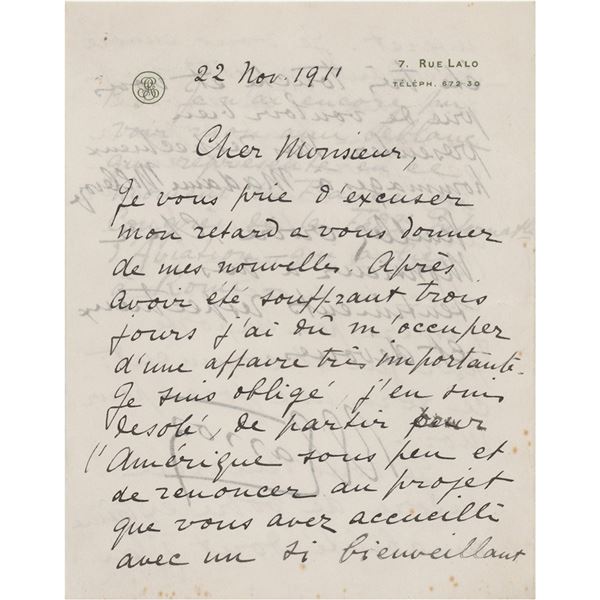 7. RUE LALO
TÉLÉPH. 672-30
22 Nov. 1911
Cher Monsieur,
Je vous prie d'excuser
mon retard a vous donner
de mes nouvelles. Après
avoir été souffrant trois
jours j'ai dû m'occuper
d'une affaire très importante.
Je suis obligé, j'en suis
desolé, de partir pour
l'Amérique sous peu et
de renoncer au projet
que vous avez accueilli
avec un si bienveillant